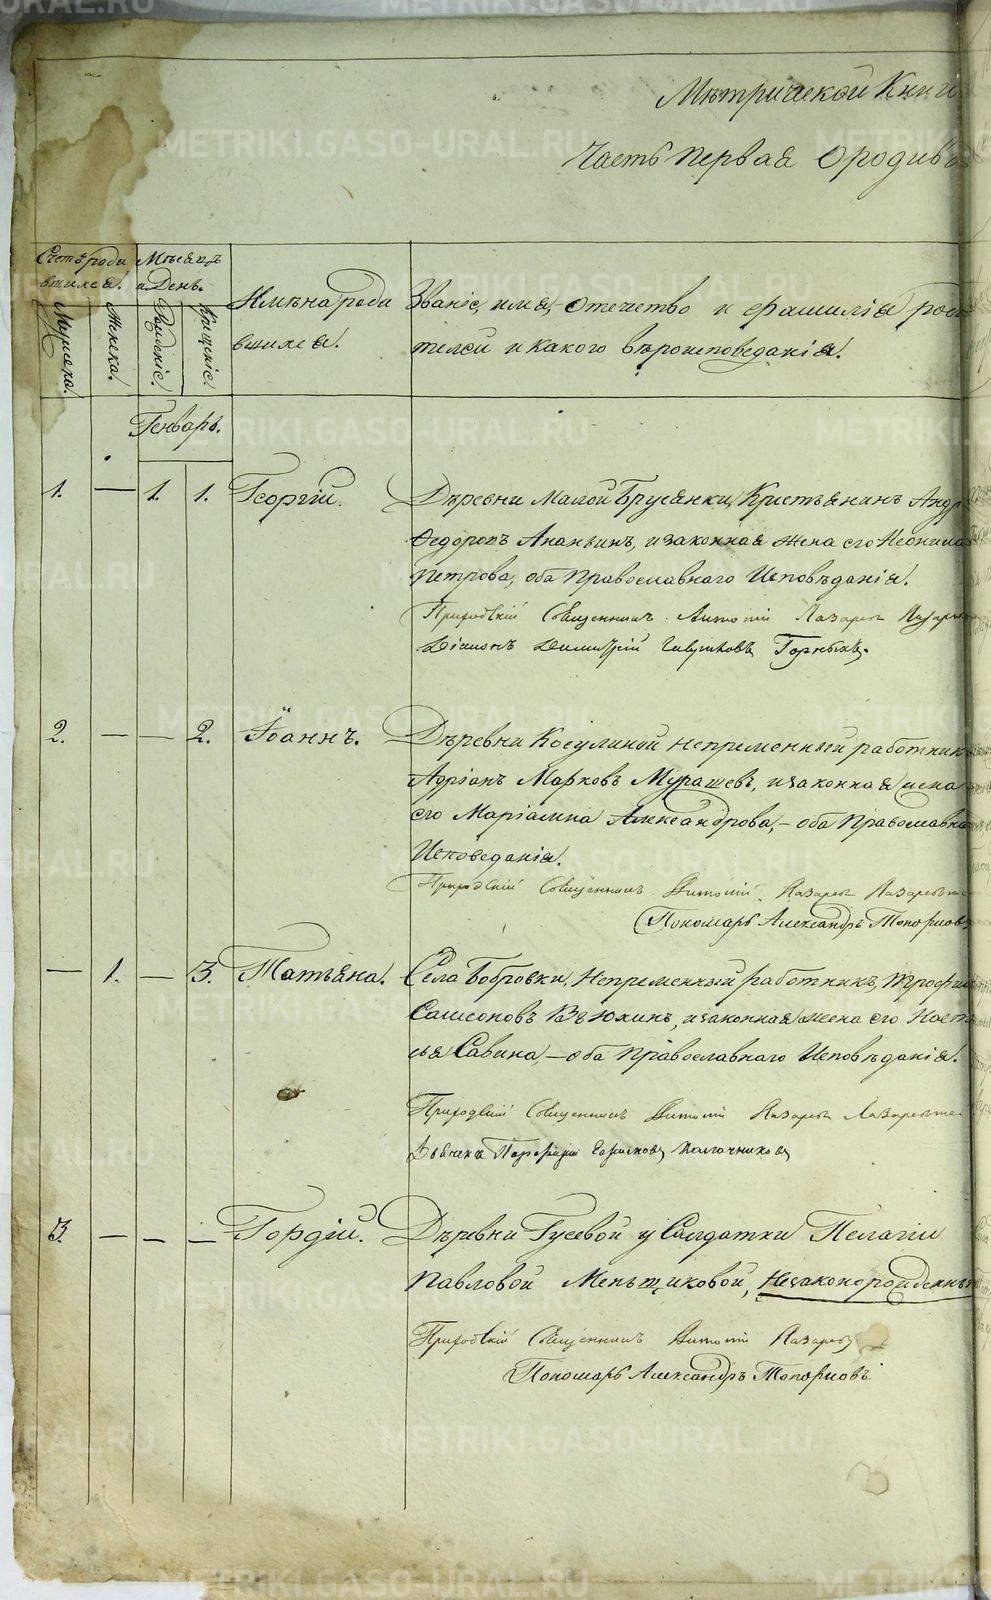 Мѣтрической Книг
Часть первая о родив
Счетъ роди
вшихся.
Мѣсяцъ
и День.
Мужеска.
Женска.
Рожденіе.
Крещеніе.
Имѣна роди
вшихся.
Званіе, имя, отечество и фамилія роди
телей и какого вѣроисповеданія.
Генварь.
1. — 1. 1. Георгій.
Дѣревни Малой Брусянки, Кристьянинъ Андр
Ѳедоровъ Ананьинъ, и законная жена его Неонила
Петрова, оба Православнаго Исповѣданія.
Приходскій Священникъ Лазаревъ
Діаконъ Димитрій Гавриловъ Горныхъ.
2. — — 2. Іоаннъ.
Дѣревни Косулиной непременный работник
Адріанъ Марковъ Мурашевъ, и законная жена
его Маріамна Александрова, — оба Православна
Исповеданія.
Приходскій Священникъ Лазаревъ
Пономарь Александръ Топорковъ
— 1. — 3. Татьяна.
Села Бобровки, Непременный работникъ, Трофим
Самсоновъ Вьюхинъ, и законная жена его Наст
сья Савина, — оба Православнаго Исповѣданія.
Приходскій Священникъ Лазаревъ
Дьячекъ Порфирій
3. — — — Гордій.
Дѣревни Гусевой у Салдатки Пелагіи
Павловой Меньщиковой, Незаконорожденны
Приходскій Священникъ Лазаревъ
Пономарь Александръ Топорковъ
METRIKI.GASO-URAL.RU